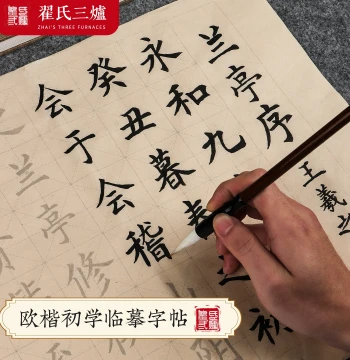 翟氏三爐
ZHAI'S THREE FURNACES
兰亭序
王羲之
永和九
癸丑暮春
初
会于会稽
兰亭
修
欧楷初学临摹字帖